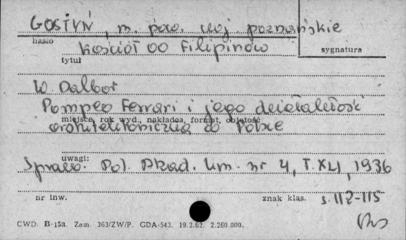 GOSTYŃ, m. pow. woj poznańskie
hasło
Kościół OO Filipinów
sygnatura
tytuł
W Dalbor
Pompeo Ferrari i jego działalność
miejsce, rok wyd., nakładca, format, objętość
architektoniczna w Polsce
uwagi:
Spraw. Pol. Akad. Um. nr 4, T. XLI, 1936
nr inw.
znak klas. s. 112-115
CWD. B-15a. Zam. 363/ZW/P. GDA-543. 19.2.62. 2.250.000.